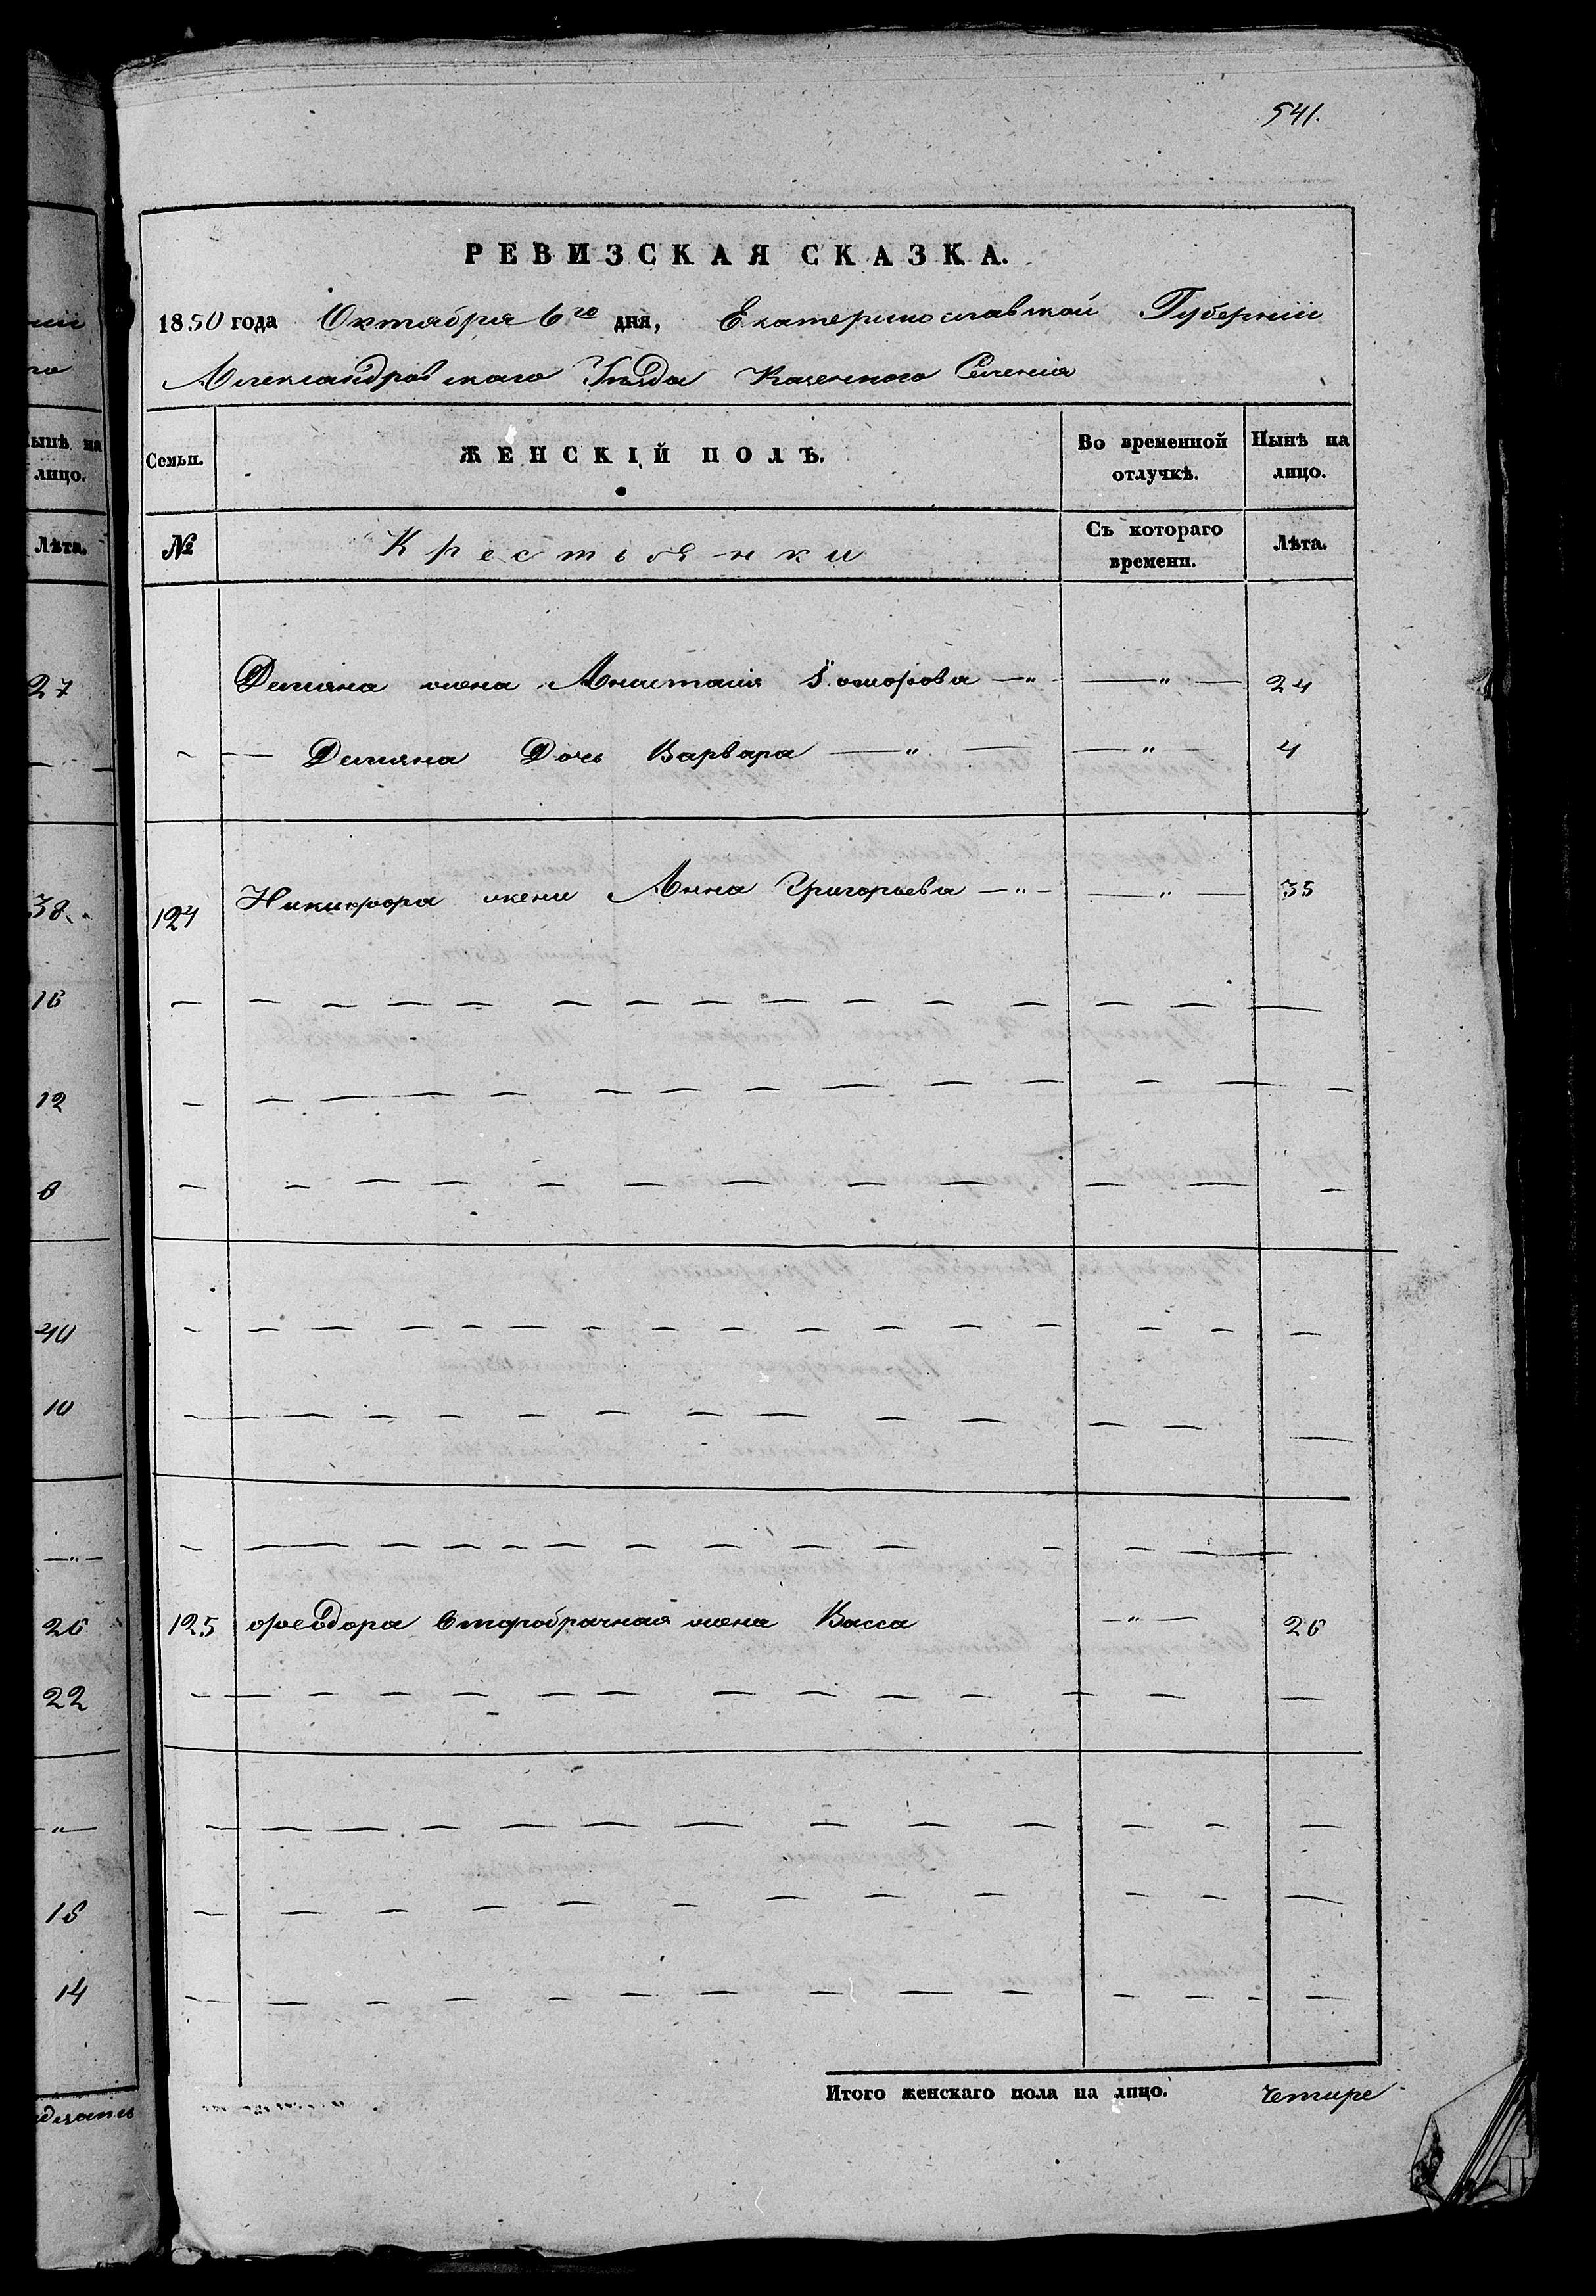 541.
РЕВИЗСКАЯ СКАЗКА.
1850 года Октября 6го дня, Екатеринославской Губерніи
Александровскаго Уѣзда Казенного Селенія
ынѣ на
лицо.
Лѣта.
27
38
16
12
8
40
10
26
22
18
14
Семьи.
ЖЕНСКІЙ ПОЛЪ.
Во временной
отлучкѣ.
Нынѣ на
лицо.
№
Крестьянки
Съ котораго
времени.
Лѣта.
Демяна жена Анастасія —"— —"— 24
— — Демяна Дочь Варвара —"— —"— 4
124 Никифора жена Анна Григорьева —"— —"— 35
125 Феодора второбрачная жена Васса —"— 26
Итого женскаго пола на лицо. Четире